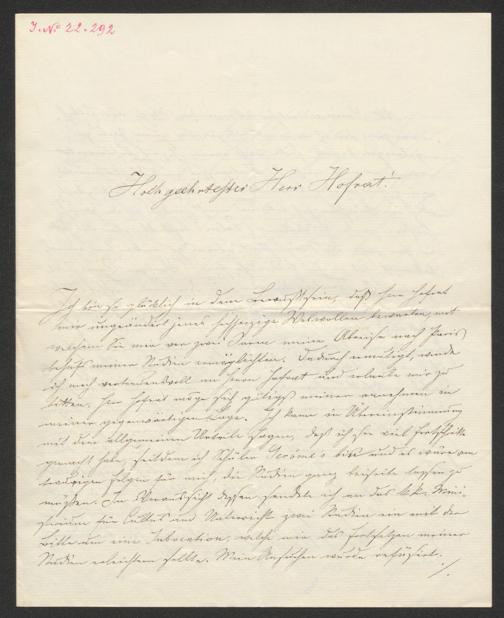 J. No 22.292
Hochgeehrtester Herr Hofrat!
Ich bin so glücklich in dem Bewußtsein, daß Herr Hofrat
mir ungeändert jenes hochherzige Wolwollen bewahren, mit
welchem Sie mir vor zwei Jaren meine Abreise nach Paris
behufs meiner Studien ermöglichten. Dadurch ermutigt, wende
ich mich vertrauensvoll an Herrn Hofrat und erlaube mir zu
bitten, Herr Hofrat möge sich gütigst meiner annehmen in
meiner gegenwärtigen Lage. Ich kann in Übereinstimmung
mit dem allgemeinen Urteile sagen, daß ich sehr viel Fortschritte
gemacht habe, seitdem ich Schüler Gerôme's bin und es wäre von
traurigen Folgen für mich, die Studien ganz beiseite lassen zu
müßen. In Voraussicht dessen sendete ich an das k.k. Mini-
sterium für Cultus und Unterricht zwei Studien ein mit der
Bitte um eine Subvention, welche mir das Fortsetzen meiner
Studien erleichtern sollte. Mein Ansuchen wurde refüsirt.
./.